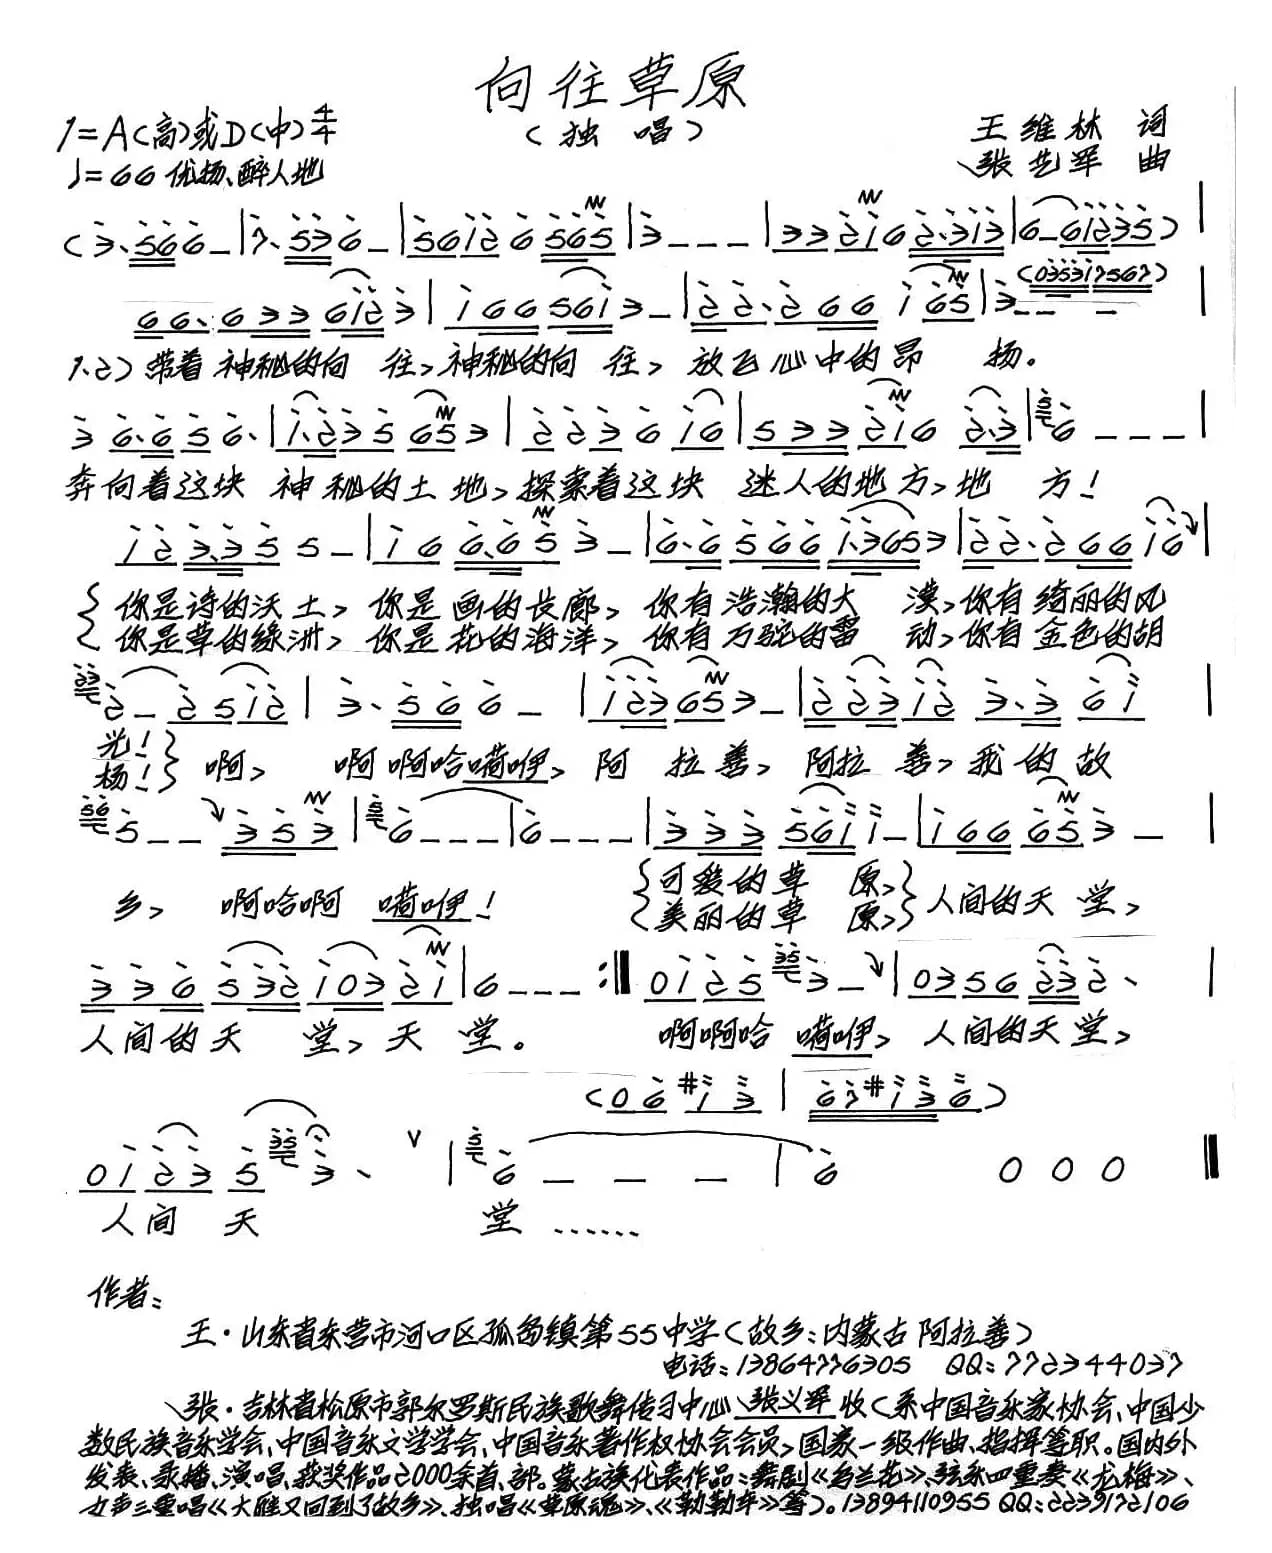 向往草原
1=A(高)或D(中) 4/4
(独 唱)
王维林 词
♩=66 优扬、醉人地
张艺军 曲
(3·566-|7·536-|56126565|3---|332162·313|6-61235)
66·6336123|1665613-|22·266165|3--- (0353176567)
1、2)带着神秘的向 往,神秘的向 往, 放飞心中的昂 扬。
36·656·|1·235653|223616|533216 2·3|6---|
奔向着这块 神秘的土地,探索着这块 迷人的地方,地 方!
123·355-|166·653-|6·65661·3653|22·26616|
你是诗的沃土, 你是画的长廊, 你有浩瀚的大 漠,你有绮丽的风
你是草的绿洲, 你是花的海洋, 你有万驼的雷 动,你有金色的胡
2-2512|3·566-|123653-|22312 3·361|
光!
杨!
啊, 啊啊哈嗬咿, 阿 拉善, 阿拉 善,我的故
5--353|6---|6---|3335611-|166653-|
乡, 啊哈啊 嗬咿!
可爱的草 原,
美丽的草 原,
人间的天 堂,
33653210321|6---:‖0125 3-|0356232·|
人间的天 堂,天 堂。 啊啊哈 嗬咿, 人间的天堂,
(06#13|67#136)
01235 3·|6---|6 000‖
人间 天 堂……
作者:
王·山东省东营市河口区孤岛镇第55中学(故乡:内蒙古阿拉善)
电话:13864776305 QQ:772344037
张·吉林省松原市郭尔罗斯民族歌舞传习中心张义军收(系中国音乐家协会、中国少
数民族音乐学会、中国音乐文学学会、中国音乐著作权协会会员,国家一级作曲、指挥等职。国内外
发表、录播、演唱、获奖作品2000余首、部。蒙古族代表作品:舞剧《乌兰花》、弦乐四重奏《尤梅》、
女声三重唱《大雁又回到了故乡》、独唱《草原魂》、《勒勒车》等)。13894110955 QQ:2239172106